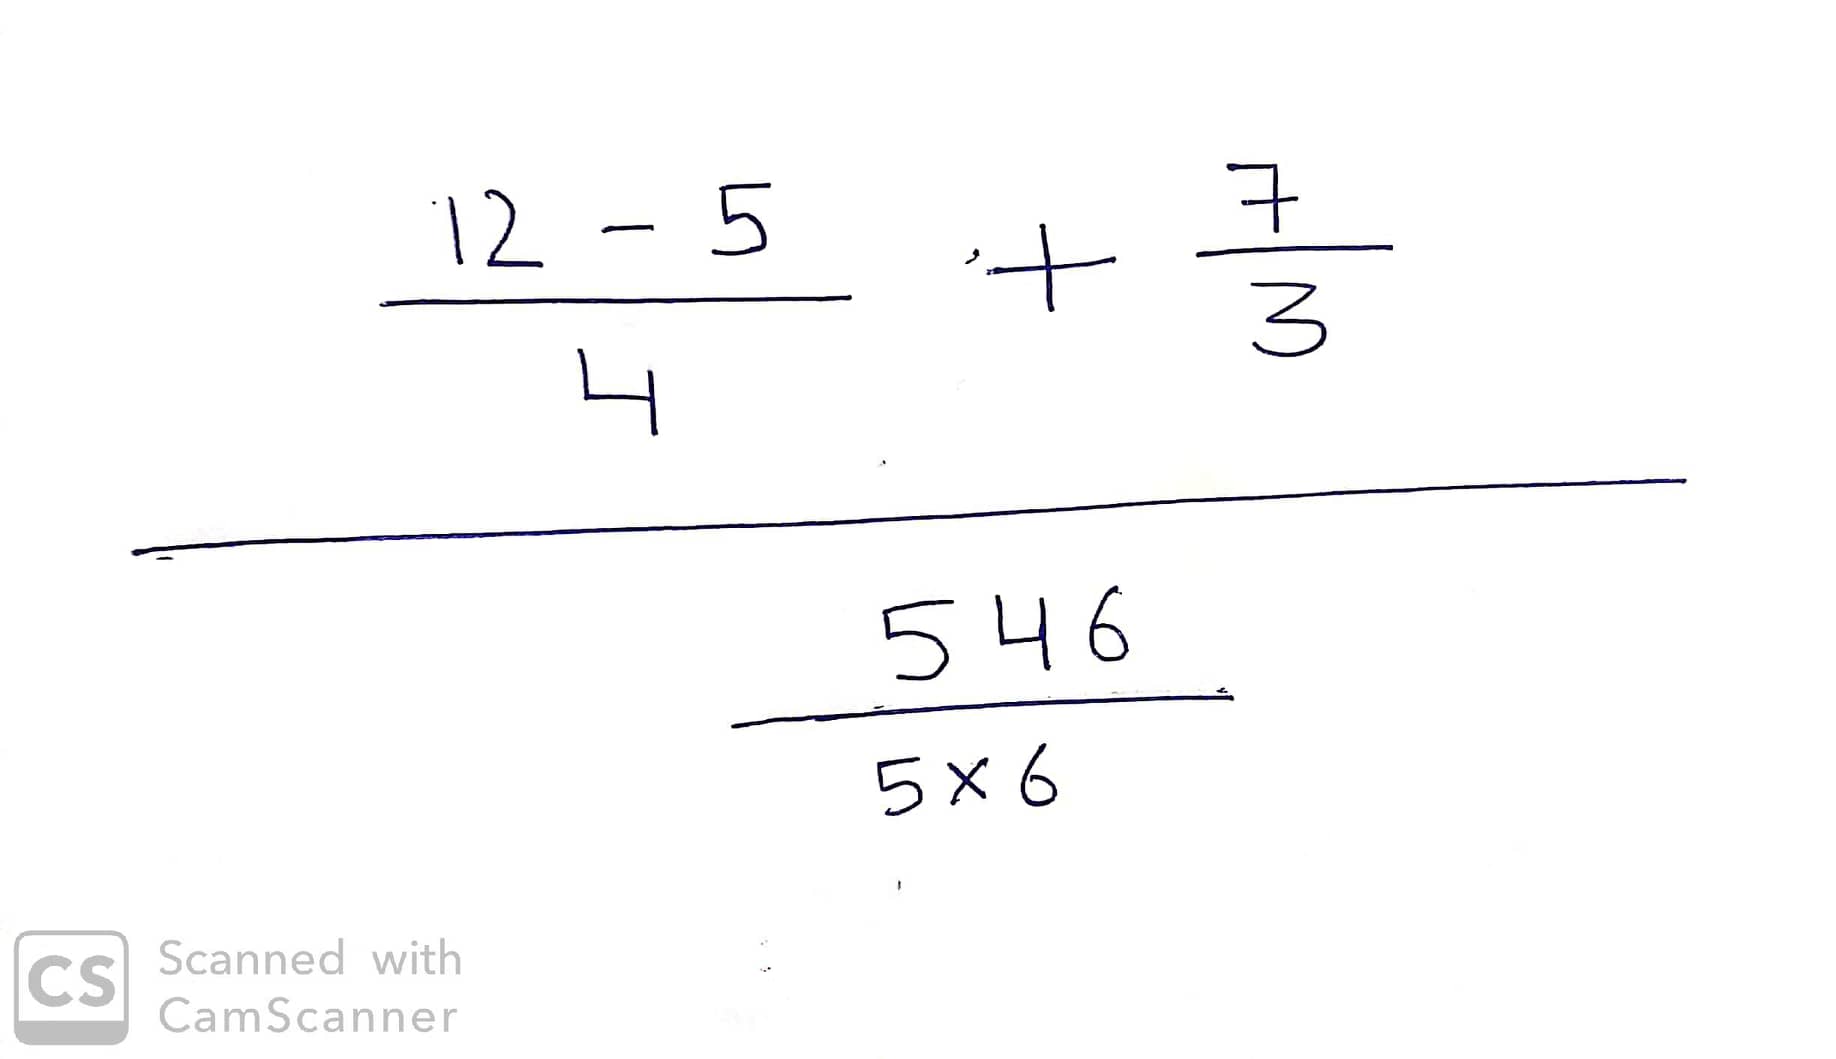 12 - 5
4
+
7
3
546
5 × 6
CS Scanned with
CamScanner